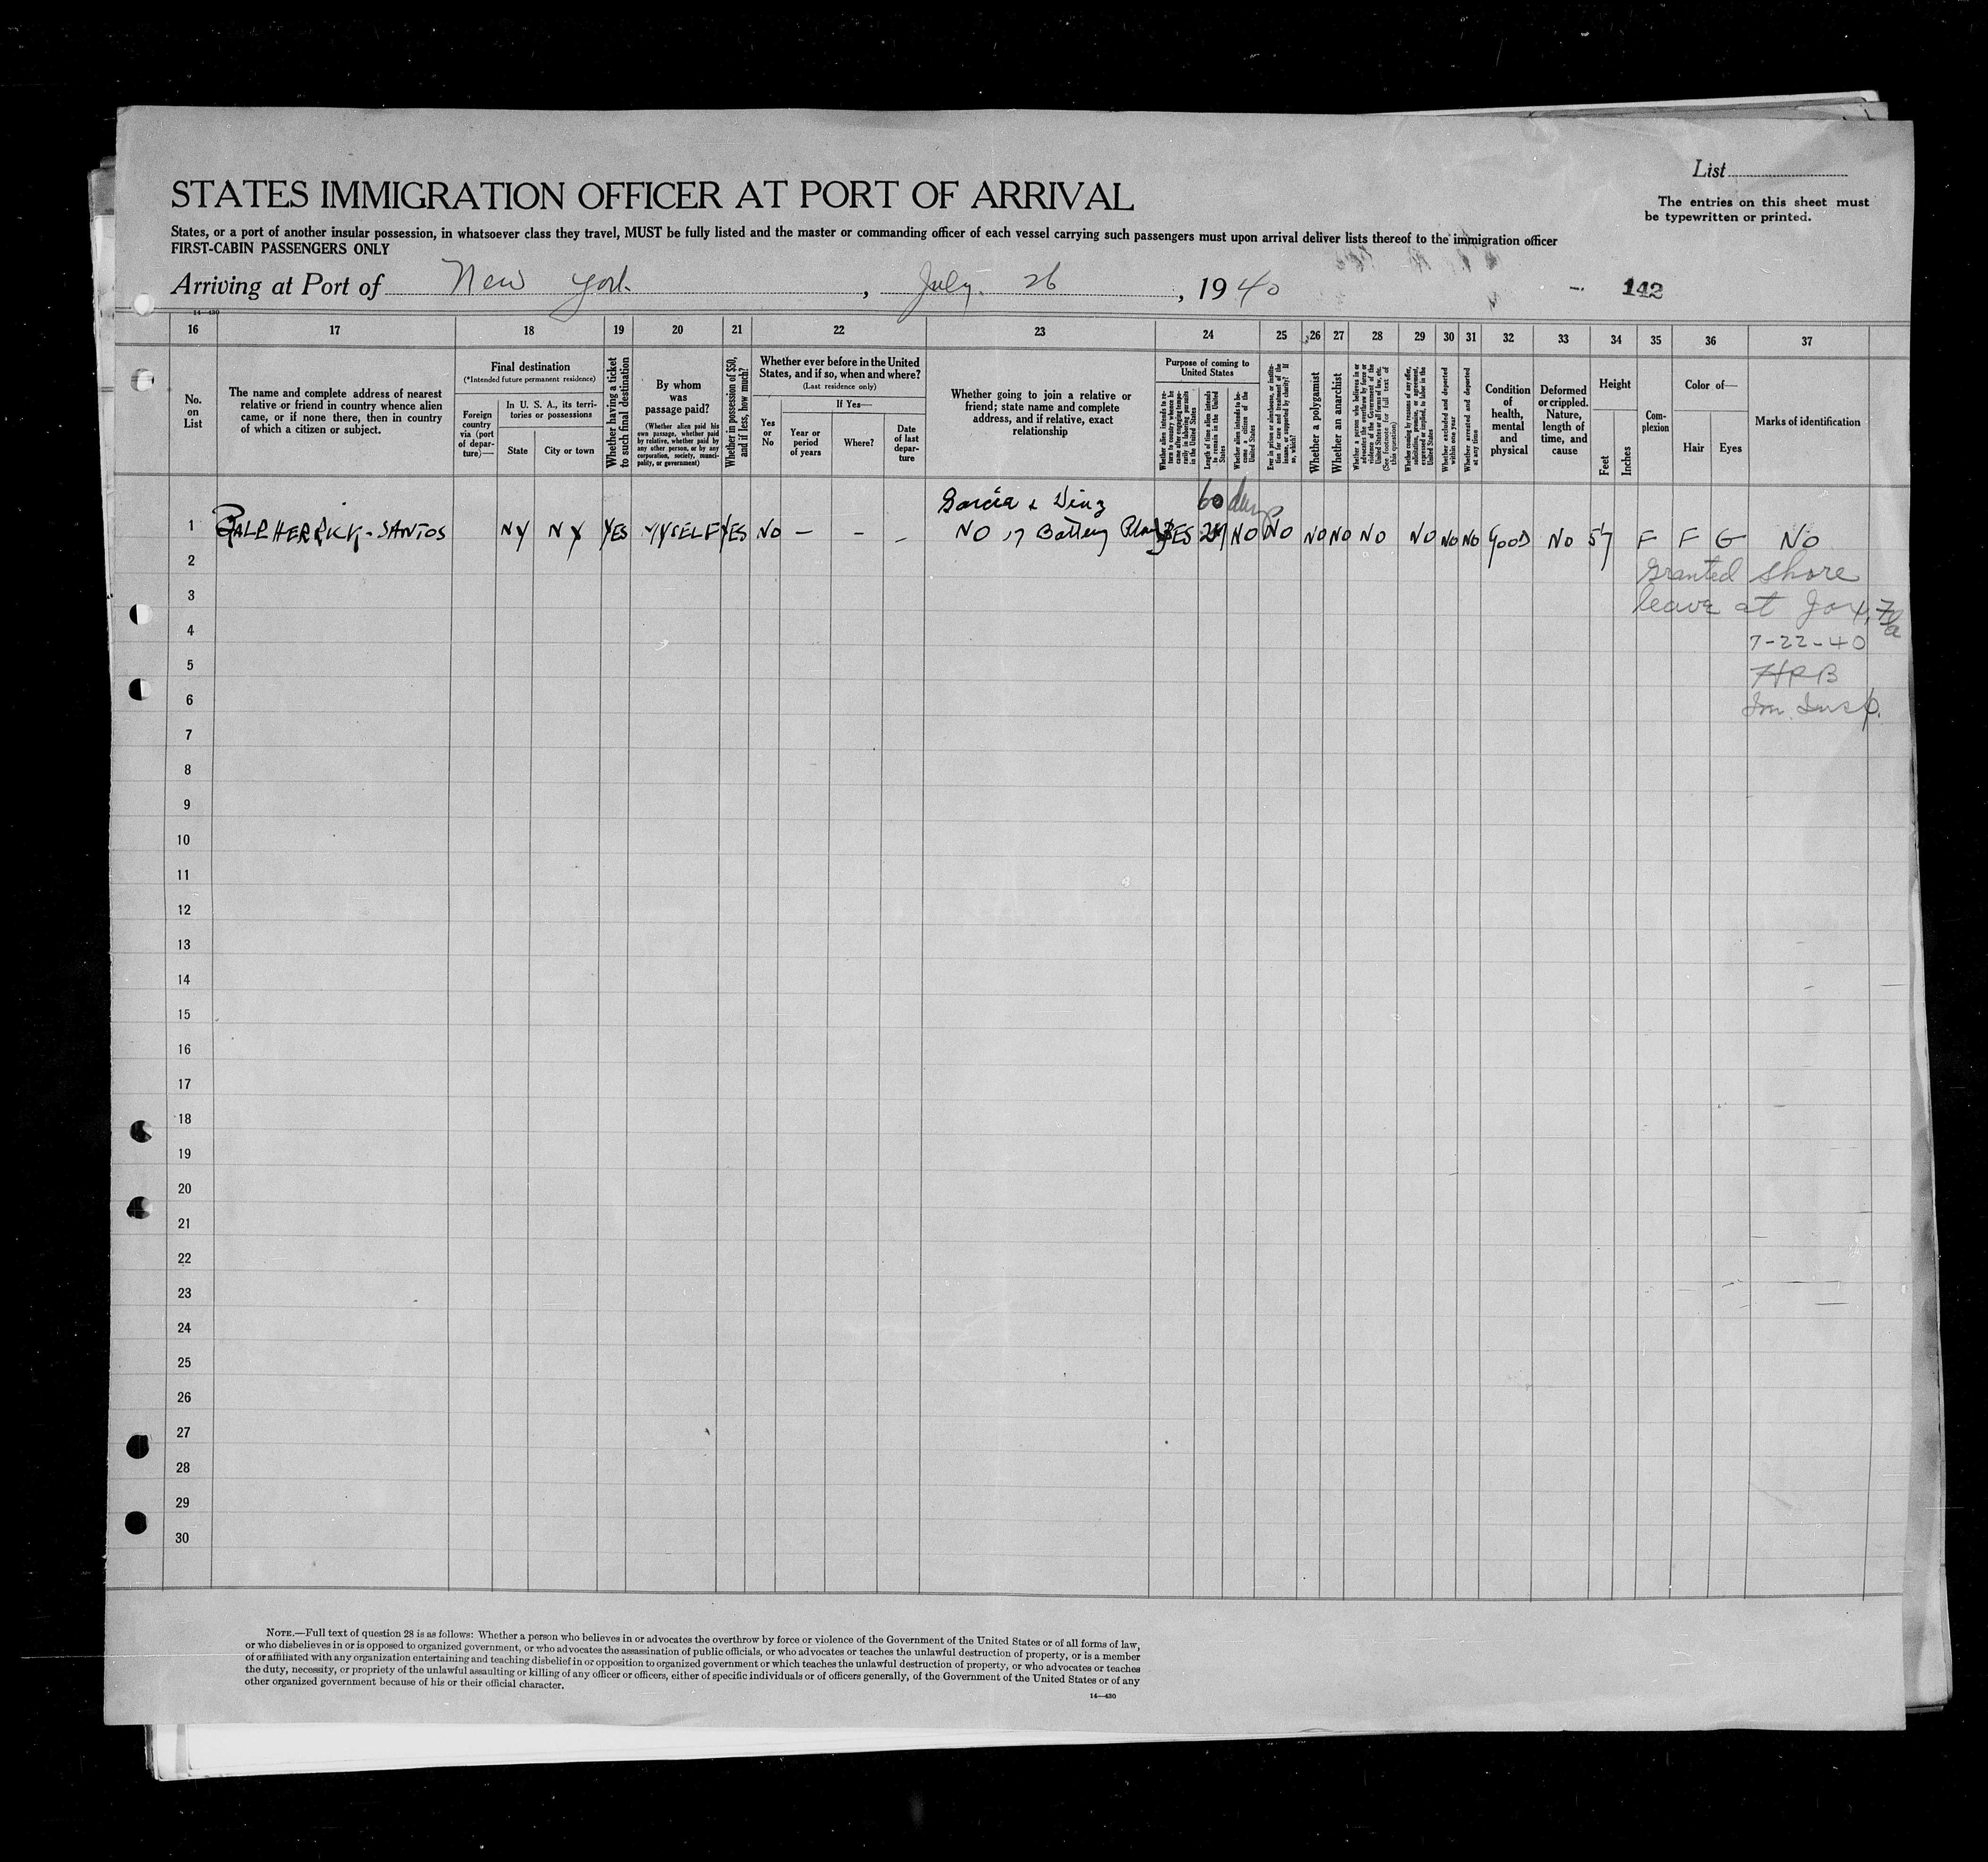 List
STATES IMMIGRATION OFFICER AT PORT OF ARRIVAL
The entries on this sheet must
be typewritten or printed.
States, or a port of another insular possession, in whatsoever class they travel, MUST be fully listed and the master or commanding officer of each vessel carrying such passengers must upon arrival deliver lists thereof to the immigration officer
FIRST-CABIN PASSENGERS ONLY
Arriving at Port of New York, July 26, 1940
142
14—430
16 17 18 19 20 21 22 23 24 25 26 27 28 29 30 31 32 33 34 35 36 37
No. on List
The name and complete address of nearest relative or friend in country whence alien came, or if none there, then in country of which a citizen or subject.
Final destination
(*Intended future permanent residence)
Foreign country via (port of departure)—
In U. S. A., its territories or possessions
State
City or town
Whether having a ticket to such final destination
By whom was passage paid?
(Whether alien paid his own passage, whether paid by relative, whether paid by any other person, or by any corporation, society, municipality, or government)
Whether in possession of $50, and if less, how much?
Whether ever before in the United States, and if so, when and where?
(Last residence only)
Yes or No
If Yes—
Year or period of years
Where?
Date of last departure
Whether going to join a relative or friend; state name and complete address, and if relative, exact relationship
Purpose of coming to United States
Whether alien intends to return to country whence he came after engaging temporarily in laboring pursuits in the United States
Length of time alien intends to remain in the United States
Whether alien intends to become a citizen of the United States
Ever in prison or almshouse, or institution for care and treatment of the insane, or supported by charity? If so, which?
Whether a polygamist
Whether an anarchist
Whether a person who believes in or advocates the overthrow by force or violence of the Government of the United States or all forms of law, etc. (See footnote for full text of this question)
Whether coming by reasons of any offer, solicitation, promise, or agreement, expressed or implied, to labor in the United States
Whether excluded and deported within one year
Whether arrested and deported at any time
Condition of health, mental and physical
Deformed or crippled. Nature, length of time, and cause
Height
Feet
Inches
Complexion
Color of—
Hair
Eyes
Marks of identification
Garcia & Diaz 60 days
1 HERRICK-SANTOS NY NY YES MYSELF YES NO — — — NO 17 Battery YES NO NO NO NO NO NO NO NO GOOD NO 5 7 F F G NO
2 Granted shore
3 leave at Jax, Fla
4 7-22-40
5 HRB
6 Im. Insp.
7
8
9
10
11
12
13
14
15
16
17
18
19
20
21
22
23
24
25
26
27
28
29
30
NOTE.—Full text of question 28 is as follows: Whether a person who believes in or advocates the overthrow by force or violence of the Government of the United States or of all forms of law,
or who disbelieves in or is opposed to organized government, or who advocates the assassination of public officials, or who advocates or teaches the unlawful destruction of property, or is a member
of or affiliated with any organization entertaining and teaching disbelief in or opposition to organized government or which teaches the unlawful destruction of property, or who advocates or teaches
the duty, necessity, or propriety of the unlawful assaulting or killing of any officer or officers, either of specific individuals or of officers generally, of the Government of the United States or of any
other organized government because of his or their official character.
14—430